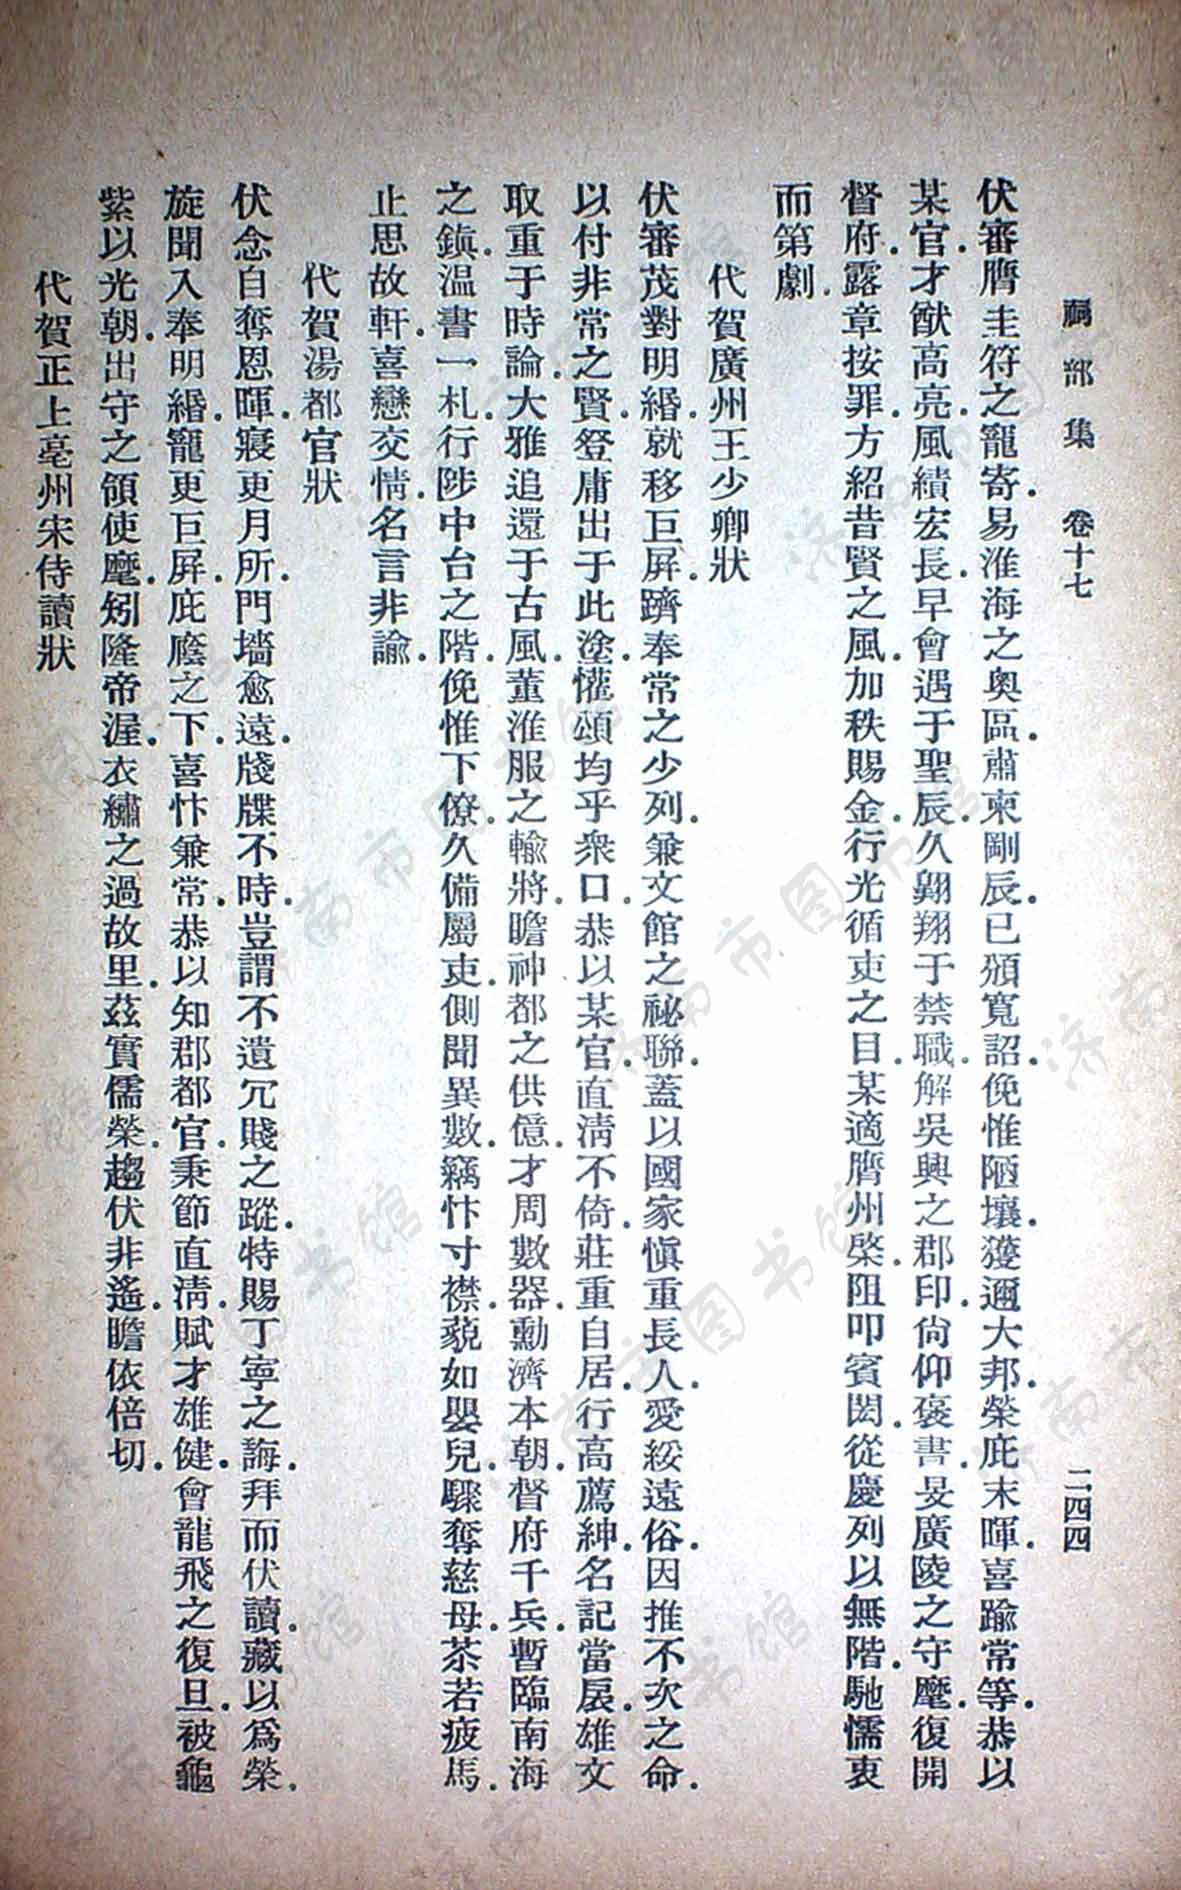 祠部集　卷十七　二四四
伏審膺圭符之寵寄．易淮海之奧區．肅柬剛辰．已頒寬詔．俛惟陋壤．獲邇大邦．榮庇末暉．喜踰常等．恭以
某官．才猷高亮．風績宏長．早會遇于聖辰．久翱翔于禁職．解吳興之郡印．尙仰褒書．旻廣陵之守麾．復開
督府．露章按罪．方紹昔賢之風．加秩賜金．行光循吏之目．某適膺州棨．阻叩賓閎．從慶列以無階．馳懦衷
而第劇．
代賀廣州王少卿狀
伏審茂對明緡．就移巨屛．躋奉常之少列．兼文館之祕聯．蓋以國家愼重長人．愛綏遠俗．因推不次之命．
以付非常之賢．登庸出于此塗．懽頌均乎衆口．恭以某官直淸不倚．莊重自居．行高薦紳．名記當扆．雄文
取重于時論．大雅追還于古風．董淮服之輸將．瞻神都之供億．才周數器．勳濟本朝．督府千兵．暫臨南海
之鎭．溫書一札．行陟中台之階．俛惟下僚．久備屬吏．側聞異數．竊忭寸襟．藐如嬰兒．驟奪慈母．茶若疲馬．
止思故軒．喜戀交情．名言非諭．
代賀湯都官狀
伏念自奪恩暉．寢更月所．門墻愈遠．牋牒不時．豈謂不遺冗賤之蹤．特賜丁寧之誨．拜而伏讀．藏以爲榮．
旋聞入奉明緡．寵更巨屛．庇廕之下．喜忭兼常．恭以知郡都官．秉節直淸．賦才雄健．會龍飛之復旦．被龜
紫以光朝．出守之領使麾．矧隆帝渥．衣繡之過故里．茲實儒榮．趨伏非遙．瞻依倍切．
代賀正上亳州宋侍讀狀